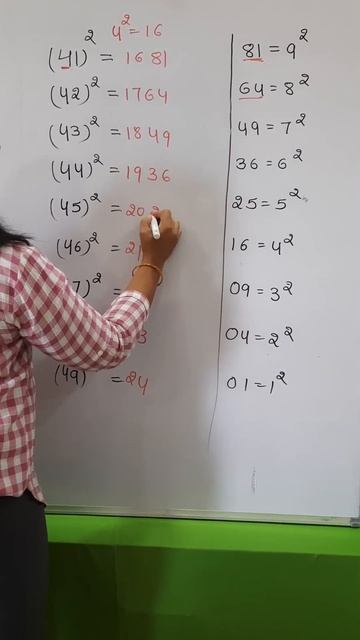 4² = 16
(41)² = 1681
(42)² = 1764
(43)² = 1849
(44)² = 1936
(45)² = 20
(46)² = 21
7)² =
3
(49) = 24
81 = 9²
64 = 8²
49 = 7²
36 = 6²
25 = 5²
16 = 4²
09 = 3²
04 = 2²
01 = 1²